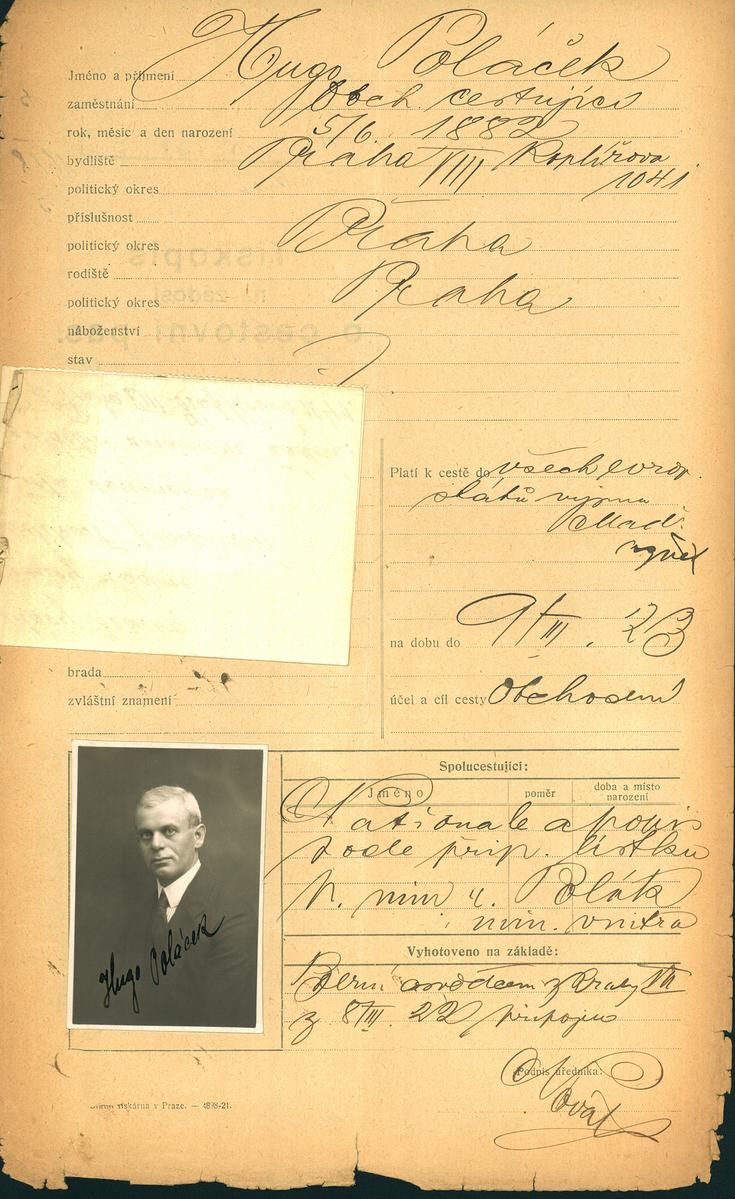 Jméno a příjmení Hugo Poláček
zaměstnání Obch cestující
rok, měsíc a den narození 5/6 1882
bydliště Praha VIII Koplířova
politický okres 1041
příslušnost
politický okres Praha
rodiště
politický okres Praha
náboženství
stav
Platí k cestě do všech evrop.
států vyjma
Maď.
na dobu do 9/III. 23
brada
zvláštní znamení
účel a cíl cesty Obchodení
Spolucestující:
Jméno
poměr
doba a místo
narození
Nationale a popis
dle přip. lístku
p. min r. Polák
min. vnitra
Vyhotoveno na základě:
Berní z Prahy VII
z 8/III. 22 připojen
Hugo Poláček
Podpis úředníka:
Státní tiskárna v Praze. — 4878-21.